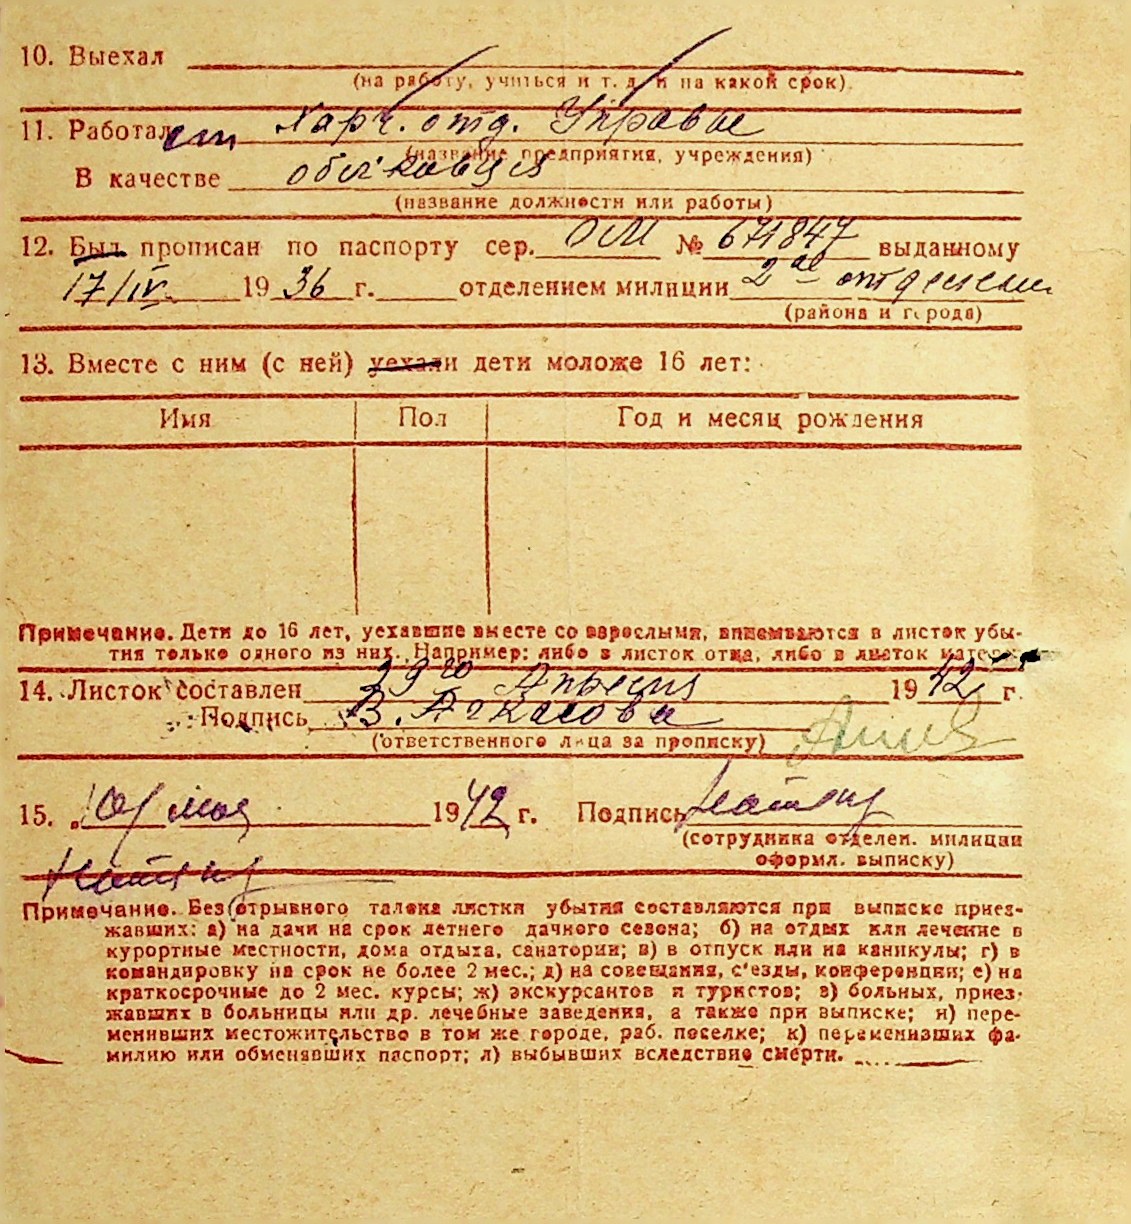 10. Выехал
(на работу, учиться и т. д. и на какой срок)
11. Работал ет Харч. отд. Управы
(название предприятия, учреждения)
В качестве
(название должности или работы)
12. Был прописан по паспорту сер. ОМ № 671847 выданному
17/IV 1936 г. отделением милиции 2ое отделение
(района и города)
13. Вместе с ним (с ней) уехали дети моложе 16 лет:
Имя Пол Год и месяц рождения
Примечание. Дети до 16 лет, уехавшие вместе со взрослыми, вписываются в листок убы-
тия только одного из них. Например: либо в листок отца, либо в листок матери
14. Листок составлен 29го Апреля 1942 г.
Подпись В.
(ответственного лица за прописку)
15. мая 1942 г. Подпись
(сотрудника отделен. милиции
оформл. выписку)
Примечание. Без отрывного талона листки убытия составляются при выписке приез-
жавших: а) на дачи на срок летнего дачного сезона; б) на отдых или лечение в
курортные местности, дома отдыха, санатории; в) в отпуск или на каникулы; г) в
командировку на срок не более 2 мес.; д) на совещания, с'езды, конференции; е) на
краткосрочные до 2 мес. курсы; ж) экскурсантов и туристов; з) больных, приез-
жавших в больницы или др. лечебные заведения, а также при выписке; и) пере-
менивших местожительство в том же городе, раб. поселке; к) переменивших фа-
милию или обменявших паспорт; л) выбывших вследствие смерти.